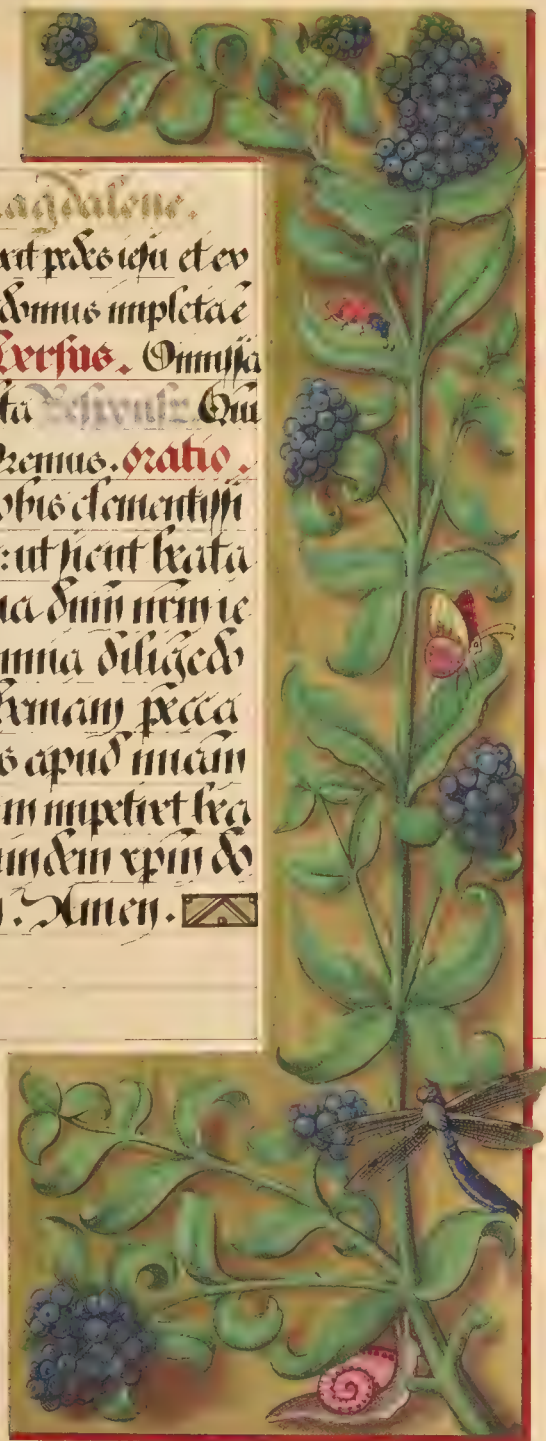 agdalene.
xit pedes iesu et ex
domus impleta e
Versus. Dimissa
ta Responsū. Qui
remus. oratio.
obis clementissi
: ut sicut beata
na dnm nrm ie
mnia diligēdo
veniam pecca
s apud miam
m impetret bea
undem xpm do
. Amen.